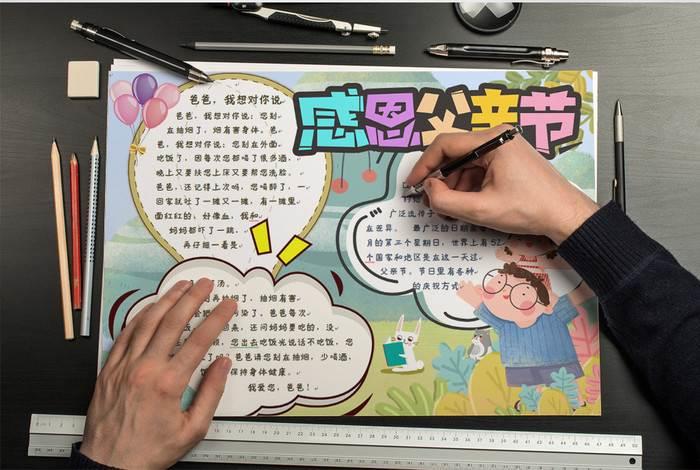 感恩父亲节
爸爸，我想对你说
爸爸，我想对你说：您别
在抽烟了，烟有害身体。爸
爸，我想对您说：您别在外面
吃饭了，因每次您都喝了很多酒，
晚上又要扶您上床又要帮您洗脸。
爸爸，还记得上次吗，您喝醉了，一
回家就吐了一摊又一摊，有一摊里
面红红的，好像血，我和
妈妈都吓了一跳。
再仔细一看是
汤。
别再抽烟了，抽烟有害
染了，爸爸每次
回来，还问妈妈要吃的，没
您出去吃饭光说话不吃饭，您
了吗？爸爸请您别在抽烟，少喝酒，
保持身体健康。
我爱您，爸爸！
广泛
在差异。 最广泛的日期
月的第三个星期日，世界上有52
个国家和地区是在这一天过
父亲节。节日里有各种
的庆祝方式